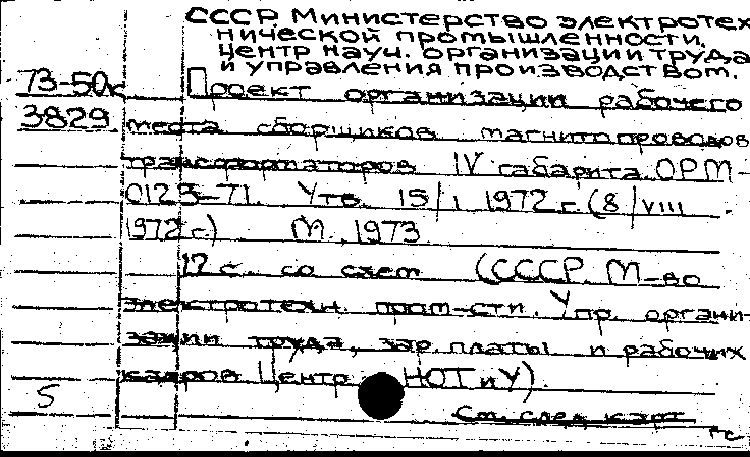 СССР. Министерство электротех
нической промышленности.
Центр науч. организации труда
и управления производством.
73-50к Проект организации рабочего
3829 места сборщиков магнитопроводов
трансформаторов IV габарита. ОРМ-
0123-71. Утв. 15/I 1972 г. (8/VIII
1972 г.) М., 1973.
12 с. со схем (СССР. М-во
электротехн. пром-сти. Упр. органи-
зации труда, зар. платы и рабочих
кадров Центр НОТ и У).
5 См. след. карт